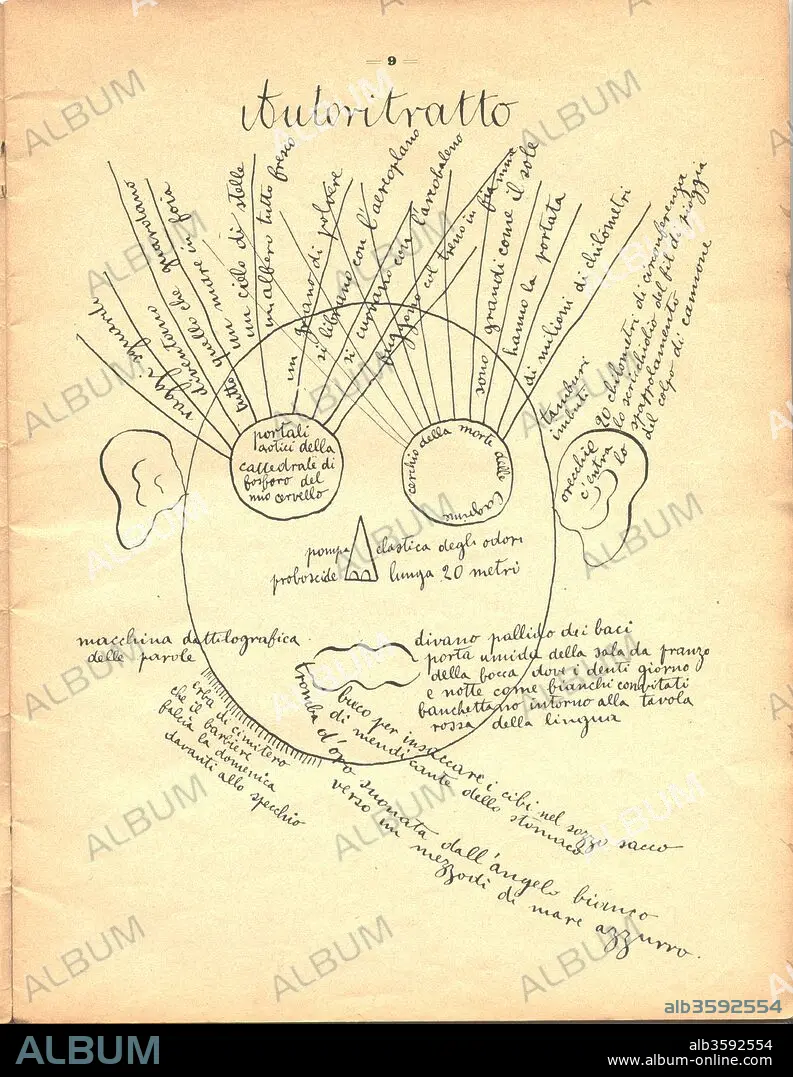 9
Autoritratto
raggi sguardi
diventano
tutto quello che guardiamo
un mare in foia
un cielo di stelle
un albero tutto fresco
un grano di polvere
si librano con l'aereoplano
si curvano con l'arcobaleno
fuggono col treno in fiamme
sono grandi come il sole
hanno la portata
di milioni di chilometri
tamburi
imbuti
20 chilometri di circonferenza
lo scricchiolio del fil di pioggia
del colpo di cannone
portali
aotici della
cattedrale di
fosforo del
mio cervello
cerchio della morte delle lagrime
orecchio
c'entra
lo
pompa elastica degli odori
proboscide lunga 20 metri
macchina dattilografica
delle parole
divano pallido dei baci
porta umida della sala da pranzo
della bocca dove i denti giorno
e notte come bianchi convitati
banchettano intorno alla tavola
rossa della lingua
erba di cimitero
che il barbiere
falcia la domenica
davanti allo specchio
buco per insaccare i cibi nel sozzo sacco
di mendicante dello stomaco
tromba d'oro suonata dall'angelo bianco
verso un mezzodì di mare azzurro.
ALBUM
alb3592554
ALBUM
alb3592554
www.album-online.com